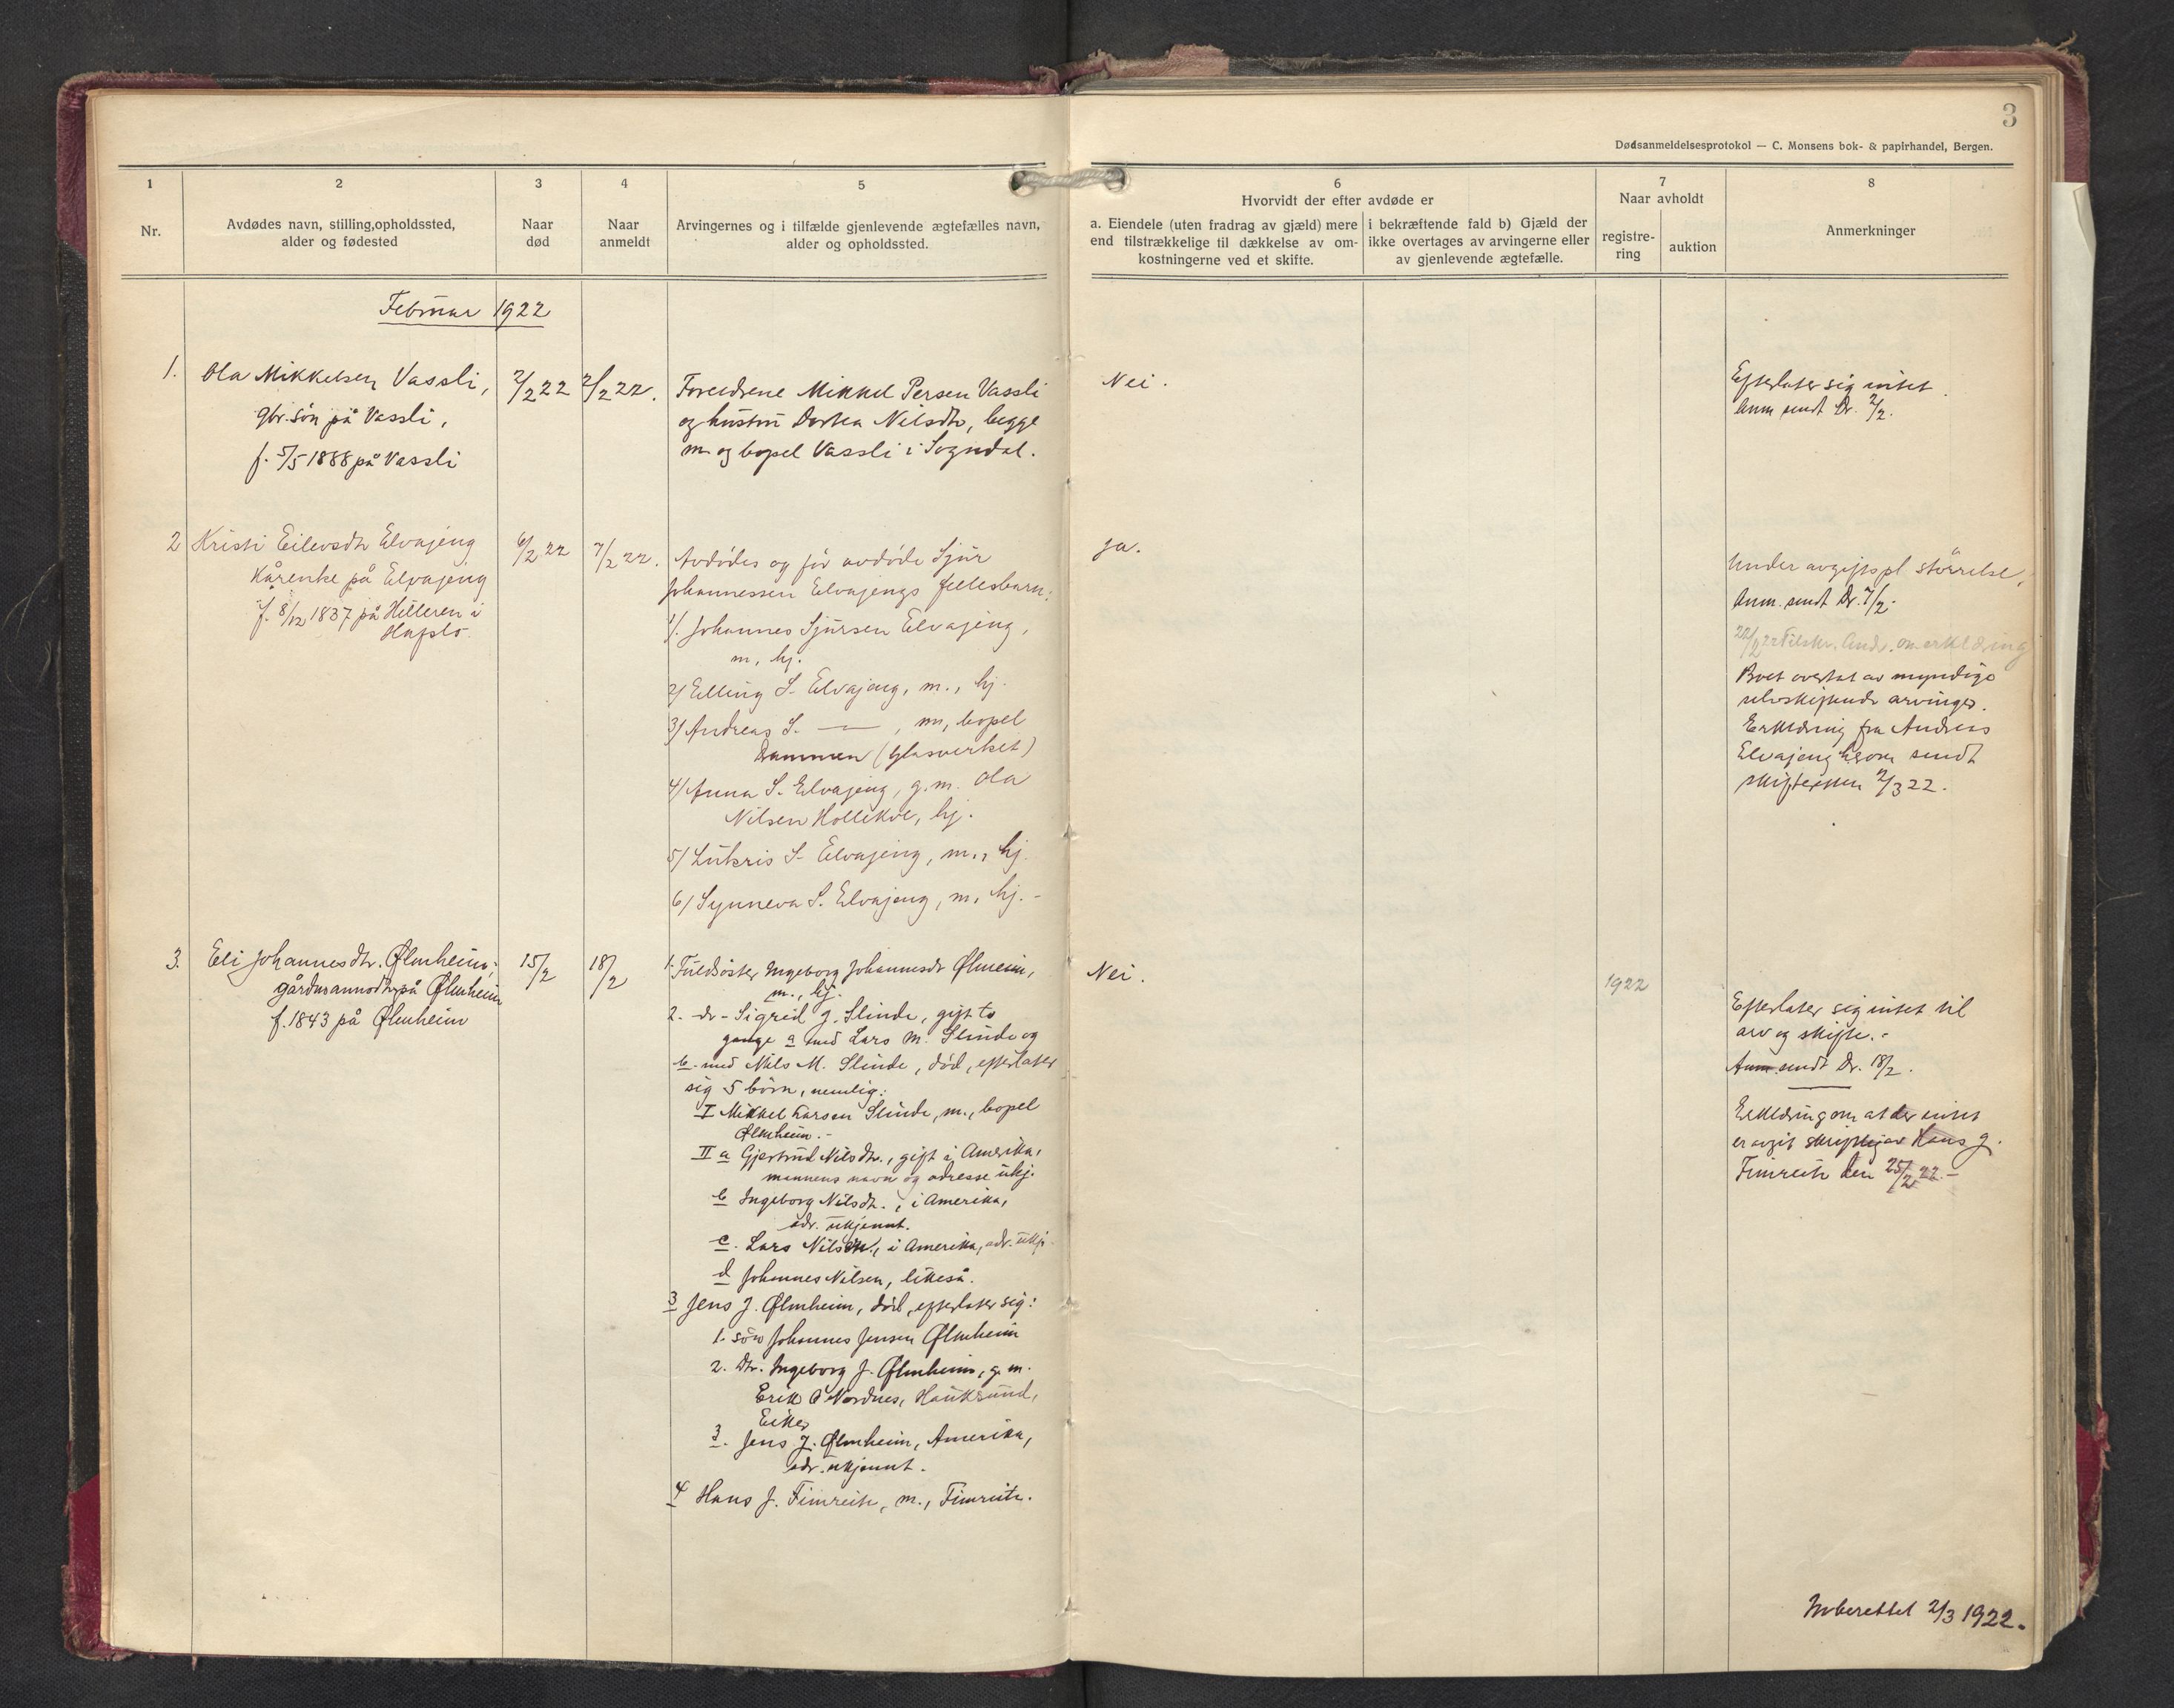 3
Dødsanmeldelsesprotokol — C. Monsens bok- & papirhandel, Bergen.
1
2
3
4
5
6
7
8
Nr.
Avdødes navn, stilling, opholdssted,
alder og fødested
Naar
død
Naar
anmeldt
Arvingernes og i tilfælde gjenlevende ægtefælles navn,
alder og opholdssted.
Hvorvidt der efter avdøde er
a. Eiendele (uten fradrag av gjæld) mere
end tilstrækkelige til dækkelse av om-
kostningerne ved et skifte.
i bekræftende fald b) Gjæld der
ikke overtages av arvingerne eller
av gjenlevende ægtefælle.
Naar avholdt
registre-
ring
auktion
Anmerkninger
Februar 1922
1.
Ola Mikkelsen Vassli,
gbr. sön på Vassli,
f. 5/5 1888 på Vassli
2/2 22
2/2 22.
Foreldrene Mikkel Persen Vassli
og hustru Dortea Nilsdtr, begge
m. og bopel Vassli i Sogndal.
Nei.
Efterlater sig intet.
Anm. sendt Dr. 2/2.
2
Kristi Eilevsdtr Elvajeng
Kårenke på Elvajeng
f. 8/12 1837 på Hilleren i
Hafslo.
6/2 22
7/2 22.
Avdödes og för avdöde Sjur
Johannessen Elvajengs fellesbarn:
1/. Johannes Sjursen Elvajeng,
m., hj.
2/ Elling S. Elvajeng, m., hj.
3/ Andreas S. —, m, bopel
Drammen (Glasverket)
4/ Anna S. Elvajeng, g.m. Ola
Nilsen Hollekve, hj.
5/ Lukris S. Elvajeng, m., hj.
6/ Synneva S. Elvajeng, m, hj. -
Ja.
Under avgiftspl. störrelse,
Anm. sendt Dr. 7/2.
22/2 22 Tilskr. Andr. om erklæring
Boet overtat av myndige
selvskiftende arvinger.
Erklæring fra Andreas
Elvajeng herom sendt
skifteretten 2/3 22.
3.
Eli Johannesdtr. Ølmheim,
gårdmannsdtr på Ølmheim
f. 1843 på Ølmheim
15/2
18/2
1. Fuldsöster Ingeborg Johannesdr Ølmeim,
m., hj.
2. - dr - Sigrid J. Slinde, gift to
gange a med Lars M. Slinde og
b. med Nils M. Slinde, död, efterlater
sig 5 börn, nemlig:
I Mikkel Larsen Slinde, m., bopel
Ølmheim. -
II a Gjertrud Nilsdtr., gift i Amerika,
mannens navn og adresse ukj.
b Ingeborg Nilsdtr., i Amerika,
adr. ukjennt.
c. Lars Nilsen, i Amerika, adr. ukj.
d Johannes Nilsen, likeså.
3 Jens J. Ølmheim, död, efterlater sig:
1. sön Johannes Jensen Ølmheim
2. Dtr. Ingeborg J. Ølmheim, g. m.
Erik O Nordnes, Hauksund,
Eiker
3. Jens J. Ølmheim, Amerika,
adr. ukjennt.
4 Hans J. Fimreite, m., Fimreite.
Nei.
1922
Efterlater sig intet til
arv og skifte. -
Anm sendt Dr. 18/2.
Erklæring om at der intet
er avgit skriftlig av Hans J.
Fimreite den 25/2 22. -
Inberettet 2/3 1922.